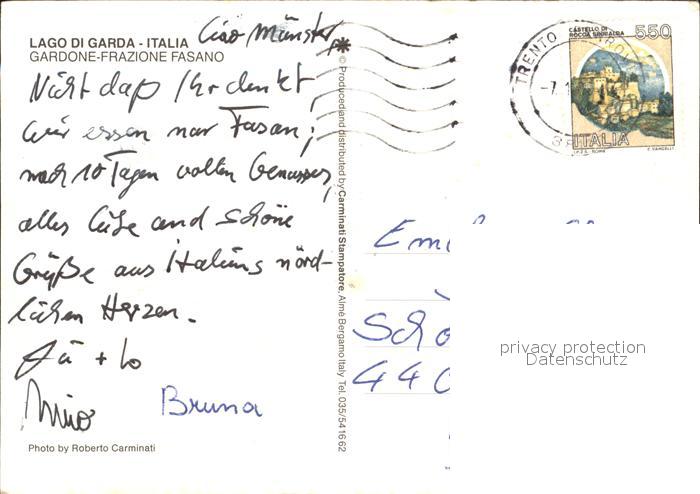 Ciao Münster,
LAGO DI GARDA - ITALIA
GARDONE-FRAZIONE FASANO
Nicht daß Ihr denkt,
wir essen nur Fasan;
nach 10 Tagen vollen Genusses,
alles Liebe und schöne
Grüße aus Italiens nörd-
lichen Herzen.
+ Lo
Bruna
Photo by Roberto Carminati
© Produced and distributed by Carminati Stampatore, Almè Bergamo Italy Tel. 035/541662
TRENTO
-7.1
CASTELLO DI
ROCCA SINIBALDA
550
ITALIA
I.P.Z.S. ROMA
Emi
Schö
440
privacy protection
Datenschutz